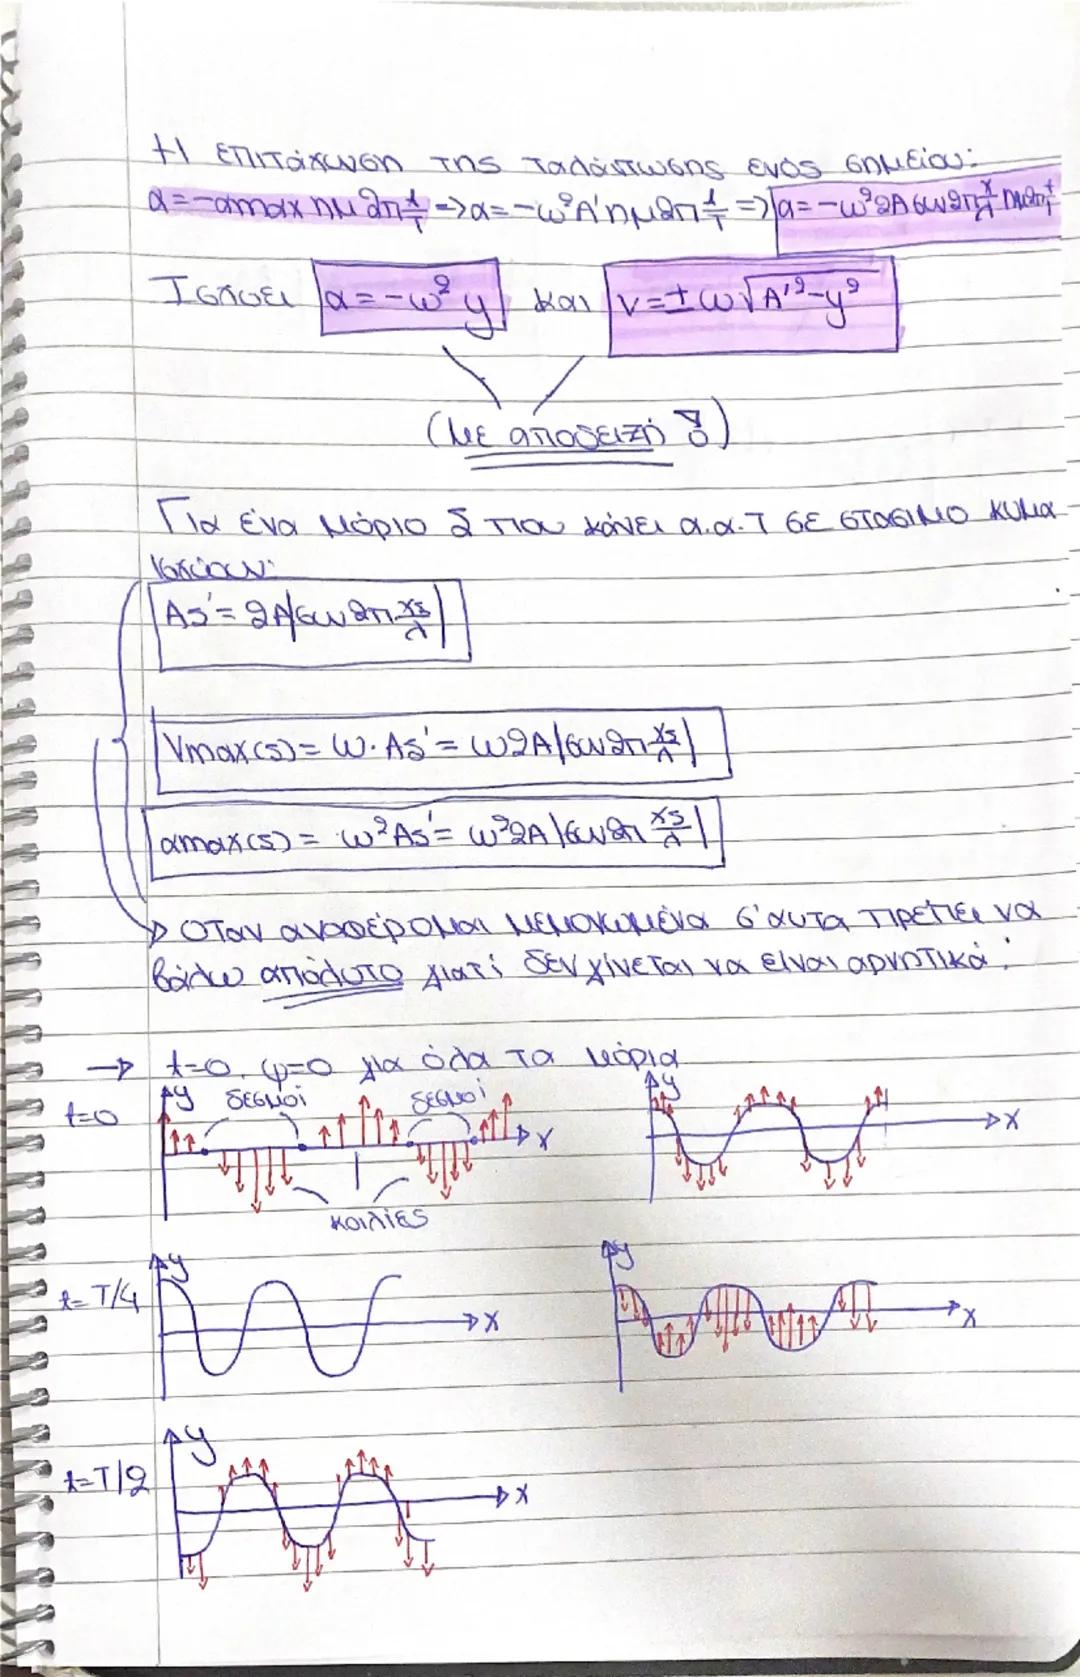 Η επιτάχυνση της ταλάντωσης ενός σημείου:
α=-αmax ημ2π t/T => α=-ω²Α'ημ2π t/T => α=-ω²2Α συν2π x/λ ημ2π t/T
Ισχύει α=-ω²y και v=±ω√Α'²-y²
(με απόδειξη !)
Για ένα μόριο Σ που κάνει α.α.Τ σε στάσιμο κύμα
ισχύουν:
As'= 2A|συν2π xs/λ|
Vmax(s)= ω·As'= ω2A|συν2π xs/λ|
αmax(s) = ω²As'= ω²2A|συν2π xs/λ|
→ Όταν αναφέρομαι μεμονωμένα σ'αυτά πρέπει να
βάλω απόλυτο γιατί δεν γίνεται να είναι αρνητικά.
→ t=0, φ=0 για όλα τα μόρια
t=0 y δεσμοί δεσμοί x y x
κοιλίες
t=T/4 y x y x
t=T/2 y x